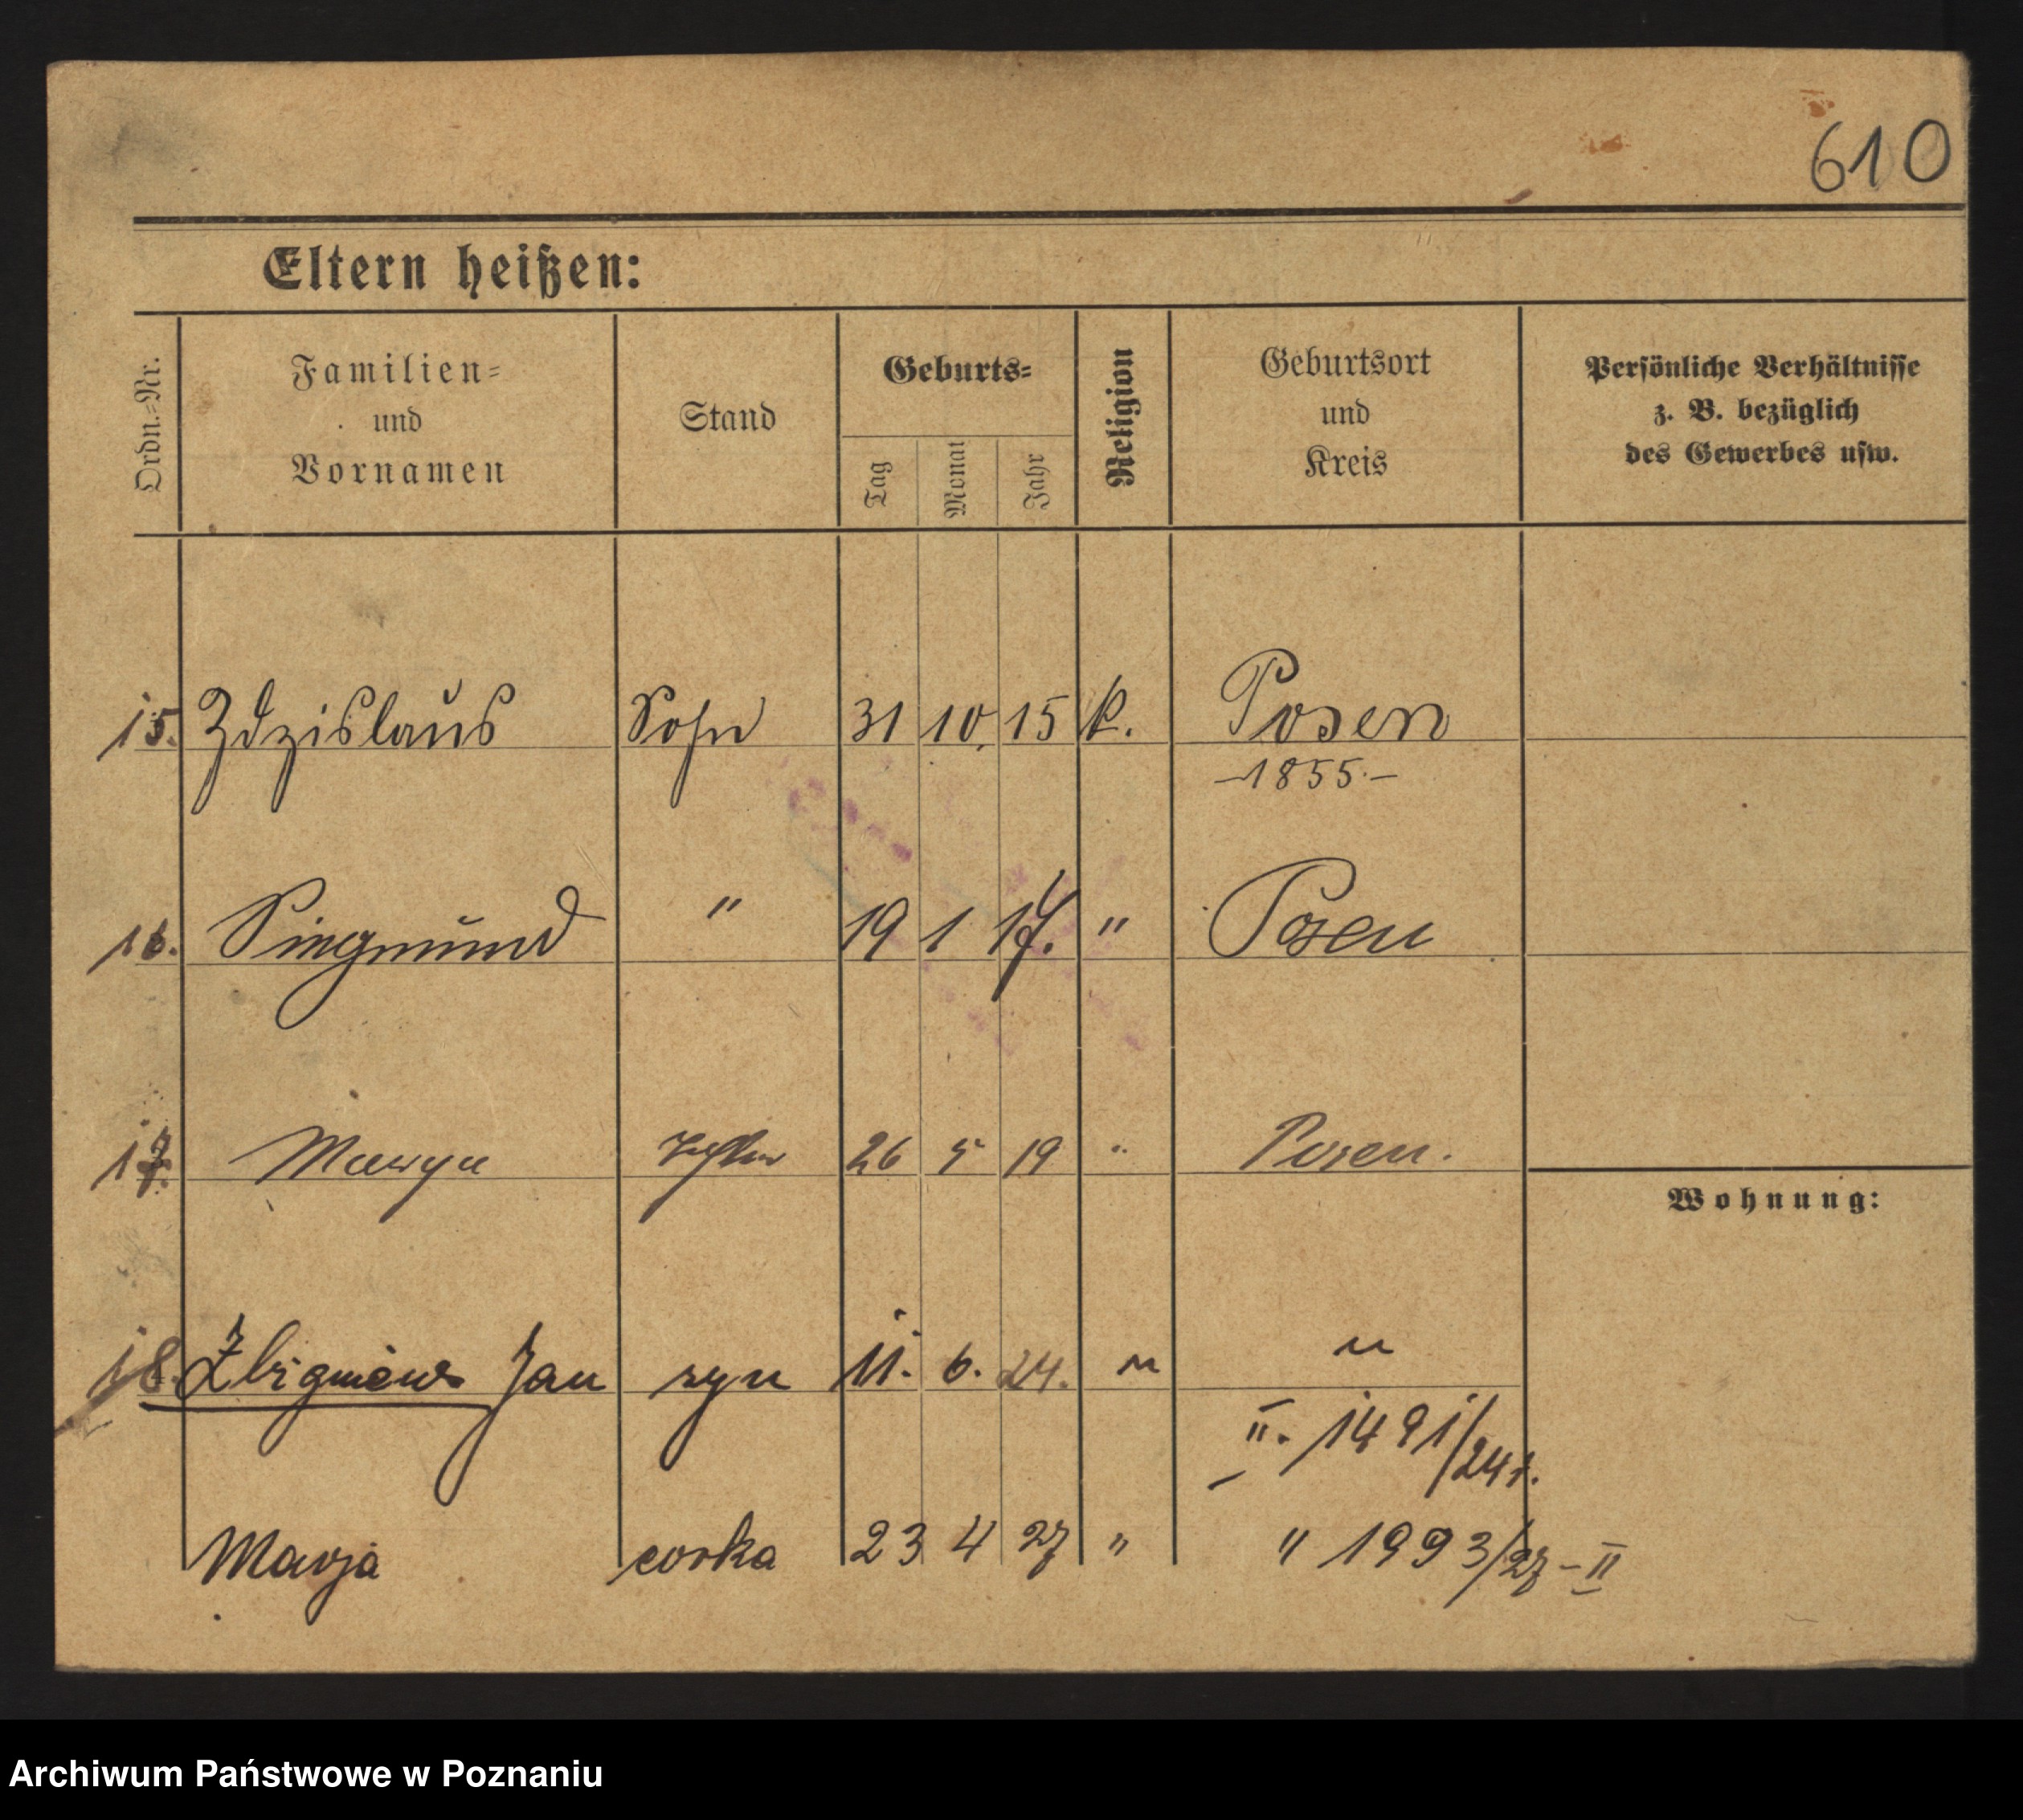 610
Eltern heißen:
Ordn.-Nr.
Familien-
und
Vornamen
Stand
Geburts-
Tag
Monat
Jahr
Religion
Geburtsort
und
Kreis
Persönliche Verhältnisse
z. B. bezüglich
des Gewerbes usw.
15. Zdzislaus Sohn 31 10. 15 k. Posen
-1855.-
16. Siegmund " 19 1 17. " Posen
17. Marya Tochter 26 5 19 " Posen.
Wohnung:
18. Zbigniew Jan syn 11. 6. 24. " "
II. 1491/24r.
Marja corka 23 4 27 " " 1993/27-II
Archiwum Państwowe w Poznaniu